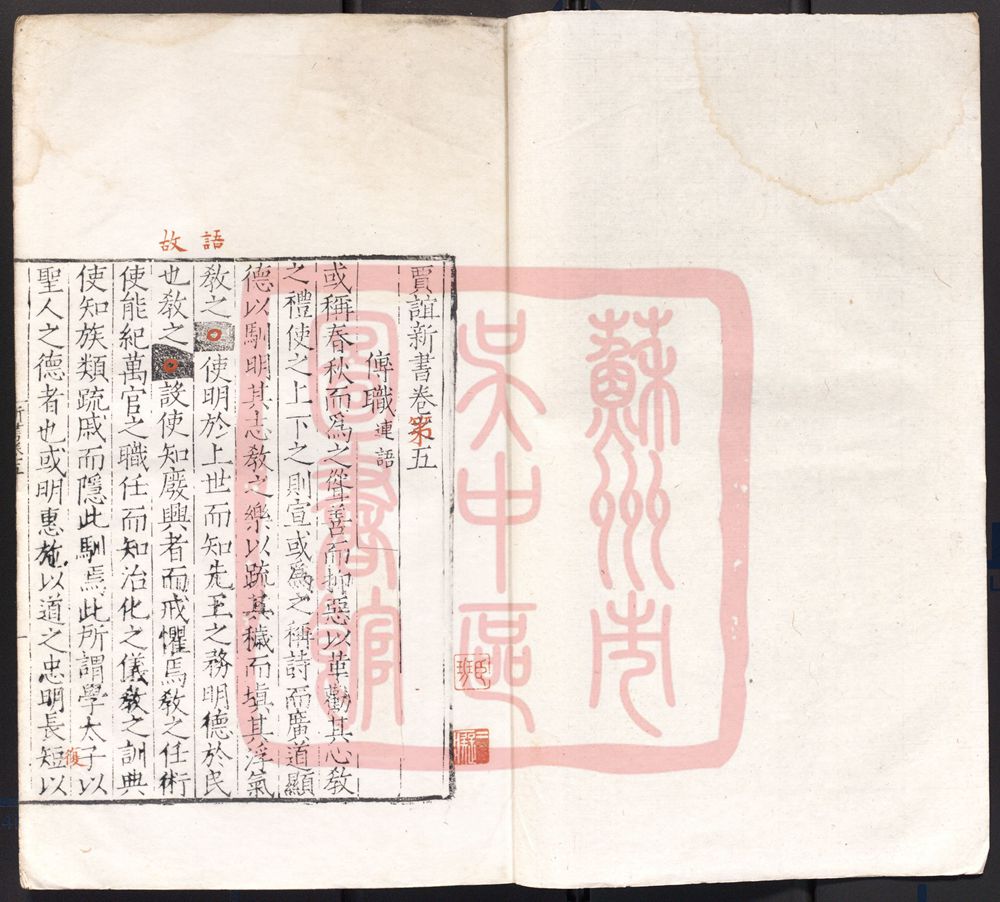 蘇州市
吳中區
圖書館
語
故
賈誼新書卷第五
傅職 連語
或稱春秋而為之聳善而抑惡以革勸其心教
之禮使之上下之則宣或為之稱詩而廣道顯
德以馴明其志教之樂以疏其穢而填其浮氣
教之使明於上世而知先王之務明德於民
也教之設使知廢興者而戒懼焉教之任術
使能紀萬官之職任而知治化之儀教之訓典
使知族類疏戚而隱此馴焉此所謂學太子以
聖人之德者也或明惠施以道之忠明長短以
復